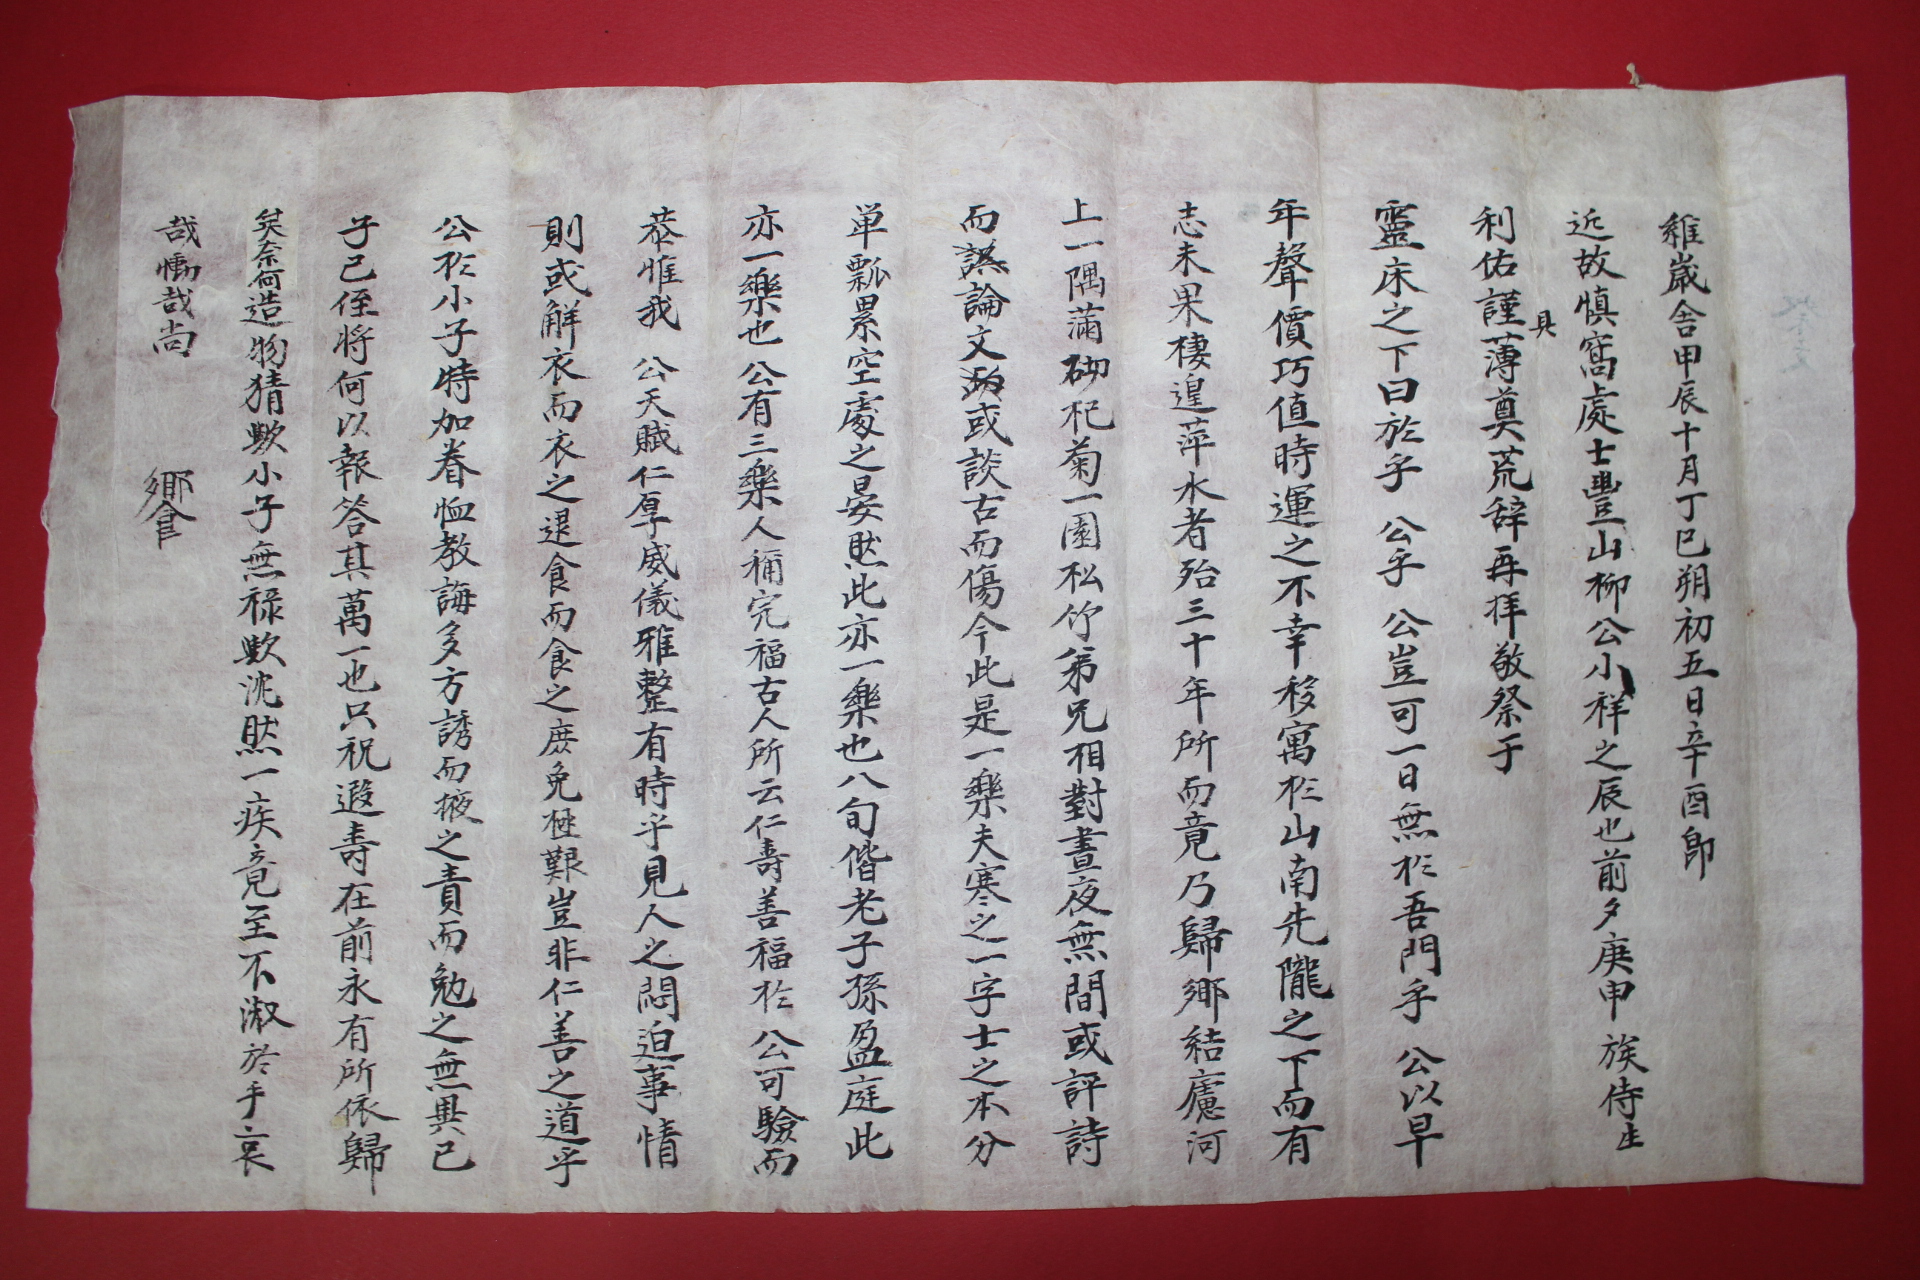 維歲舍甲辰十月丁巳朔初五日辛酉卽
近故愼窩處士豊山柳公小祥之辰也前夕庚申 族侍生
利佑謹具薄奠荒辞再拝敬祭于
靈床之下曰於乎 公乎 公豈可一日無於吾門乎 公以早
年聲價巧值時運之不幸移寓於山南先隴之下而有
志未果棲遑萍水者殆三十年所而竟乃歸鄉結廬河
上一隅滿砌杞菊一園松竹弟兄相對晝夜無間或評詩
而論文或談古而傷今此是一樂夫寒之一字士之本分
单瓢累空處之晏然此亦一樂也八旬偕老子孫盈庭此
亦一樂也公有三樂人稱完福古人所云仁壽善福於 公可驗而
恭惟我 公天賦仁厚威儀雅整有時乎見人之悶迫事情
則或解衣而衣之退食而食之庶免極艱豈非仁善之道乎
公於小子特加眷恤敎誨多方誘而掖之責而勉之無異己
子己侄將何以報答其萬一也只祝遐壽在前永有所依歸
矣奈何造物猜歟小子無祿歟沈然一疾竟至不淑於乎哀
哉慟哉尚
饗